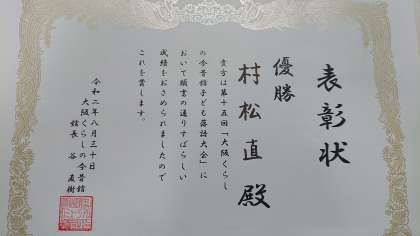 表彰状
優勝
村松直殿
貴方は第十五回「大阪くらし
の今昔館子ども落語大会」に
おいて頭書の通りすばらしい
成績をおさめられましたので
これを賞します。
令和二年八月三十日
大阪くらしの今昔館
館長 谷直樹